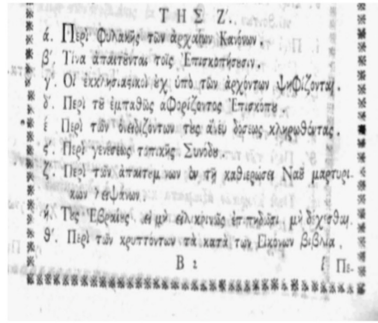 ΤΗΣ Ζ΄.
ά. Περὶ Φυλακῆς τῶν ἀρχαίων Κανόνων.
β΄. Τίνα ἀπαιτοῦνται τοῖς Ἐπισκοπήσεσιν.
γ΄. Οἱ ἐκκλησιαστικοὶ οὐχ ὑπὸ τῶν ἀρχόντων ψηφίζονται.
δ΄. Περὶ τοῦ ἐμπαθῶς ἀφορίζοντος Ἐπισκόπου.
έ Περὶ τῶν ὀνειδιζόντων τοὺς ἄνευ δόσεως κληρωθέντας.
ς΄. Περὶ γενέσεως τοπικῆς Συνόδου.
ζ΄. Περὶ τῶν ἀπαιτουμένων ἐν τῇ καθιερώσει Ναοῦ μαρτυρι-
κῶν λειψάνων.
ή. Τοὺς Ἑβραίους εἰ μὴ εἰλικρινῶς ἐπιστρέφωσι μὴ δέχεσθαι.
θ΄. Περὶ τῶν κρυπτόντων τὰ κατὰ τῶν Εἰκόνων βιβλία.
Β 2
ί Πε-